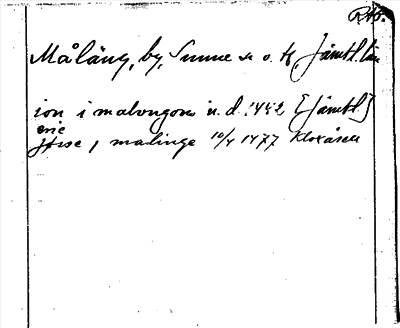 RAÖ.
Målång, by, Sunne sn o. tg, Jämtl. län
ion i malongom u. d. 1442 [Jämtl.]
i malinge 10/4 1477 Kloxåsen